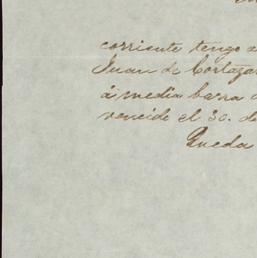 corriente tengo
Juan de Cortaza
á media barra
vencido el 30. de
Queda